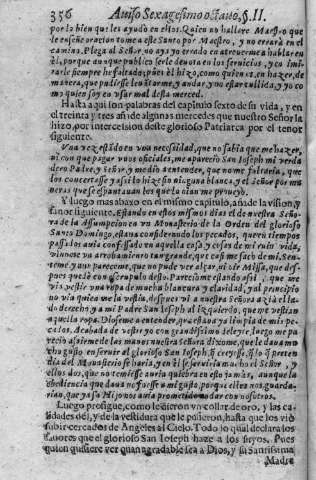 356 Auiso Sexagesimo octauo, §. II.
por lo bien que les ayudo en ellos. Quien no hallare Maestro que
le enseñe oracion tome a este Santo por Maestro, y no errarà en el
camino. Plega al Señor no aya yo errado en atreuerme a hablar en
èl, porque aunque publico serle deuota en los seruicios, y en imi-
tarle siempre he faltado; pues èl hizo, como quien es, en hazer, de
manera, que pudiesse leuantarme, y andar, y no estar tullida, y yo co-
mo quien soy en vsar mal desta merced.
Hasta aqui son palabras del capitulo sexto de su vida, y en
el treinta y tres añade algunas mercedes que nuestro Señor la
hizo, por intercession deste glorioso Patriarca por el tenor
siguiente.
Vna vez estando en vna necessidad, que no sabia que me hazer,
ni con que pagar vnos oficiales, me apareciò San Ioseph mi verda
dero Padre, y Señor, y me diò a entender, que no me faltaria, que
los concertasse y assi lo hize sin ninguna blanca, y el Señor por ma
neras que se espantauan los que lo oian me proueyò.
Y luego mas abaxo en el mismo capitulo, añade la vision, y
fauor siguiente. Estando en estos mismos dias el de nuestra Seño-
ra de la Assumpcion en vn Monasterio de la Orden del glorioso
Santo Domingo, estaua considerando los pecados, que en tiempos
passados auia confessado en aquella casa, y cosas de mi ruin vida,
vinome vn arrobamiento tan grande, que casi me sacò de mi. Sen-
teme y aun pareceme, que no pude ver alçar, ni oir Missa, que des-
pues quedè con escrupulo desto. Pareciòme estando assi, que me
vìa vestir vna ropa de mucha blancura y claridad, y al principio
no vìa quien me la vestia, despues vì a nuestra Señora azia el la-
do derecho, y a mi Padre San Ioseph al izquierdo, que me vestian
aquella ropa. Diòseme a entender, que estaua ya limpia de mis pe-
cados. Acabada de vestir yo con grandissimo deleyte, luego me pa-
reciò assirme de las manos nuestra Señora dixome, que le daua mu
cho gusto en seruir al glorioso San Ioseph, que creyesse, que lo que preten
dia del Monasterio se haria, y en èl se seruiria mucho el Señor, y
ellos dos, que no temiesse auria quiebra en esto jamàs, aunque la
obediencia que daua no fuesse a mi gusto, porque ellos nos guarda-
rian, que ya su Hijo nos auia prometido andar con nosotros.
Luego prosigue, como le dieron vn collar de oro, y las ca-
lidades dèl, y de la vestidura que le pusieron, hasta que los viò
subir cercados de Angeles al Cielo. Todo lo qual declara los
fauores que el glorioso San Ioseph haze a los suyos. Pues
quien quisiere ver quan agradable sea a Dios, y su Santissima
Madre